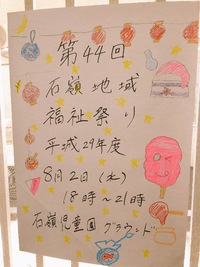 第44回
石嶺地域
福祉祭り
平成29年度
8月2日(水)
18時～21時
石嶺児童園グラウンド